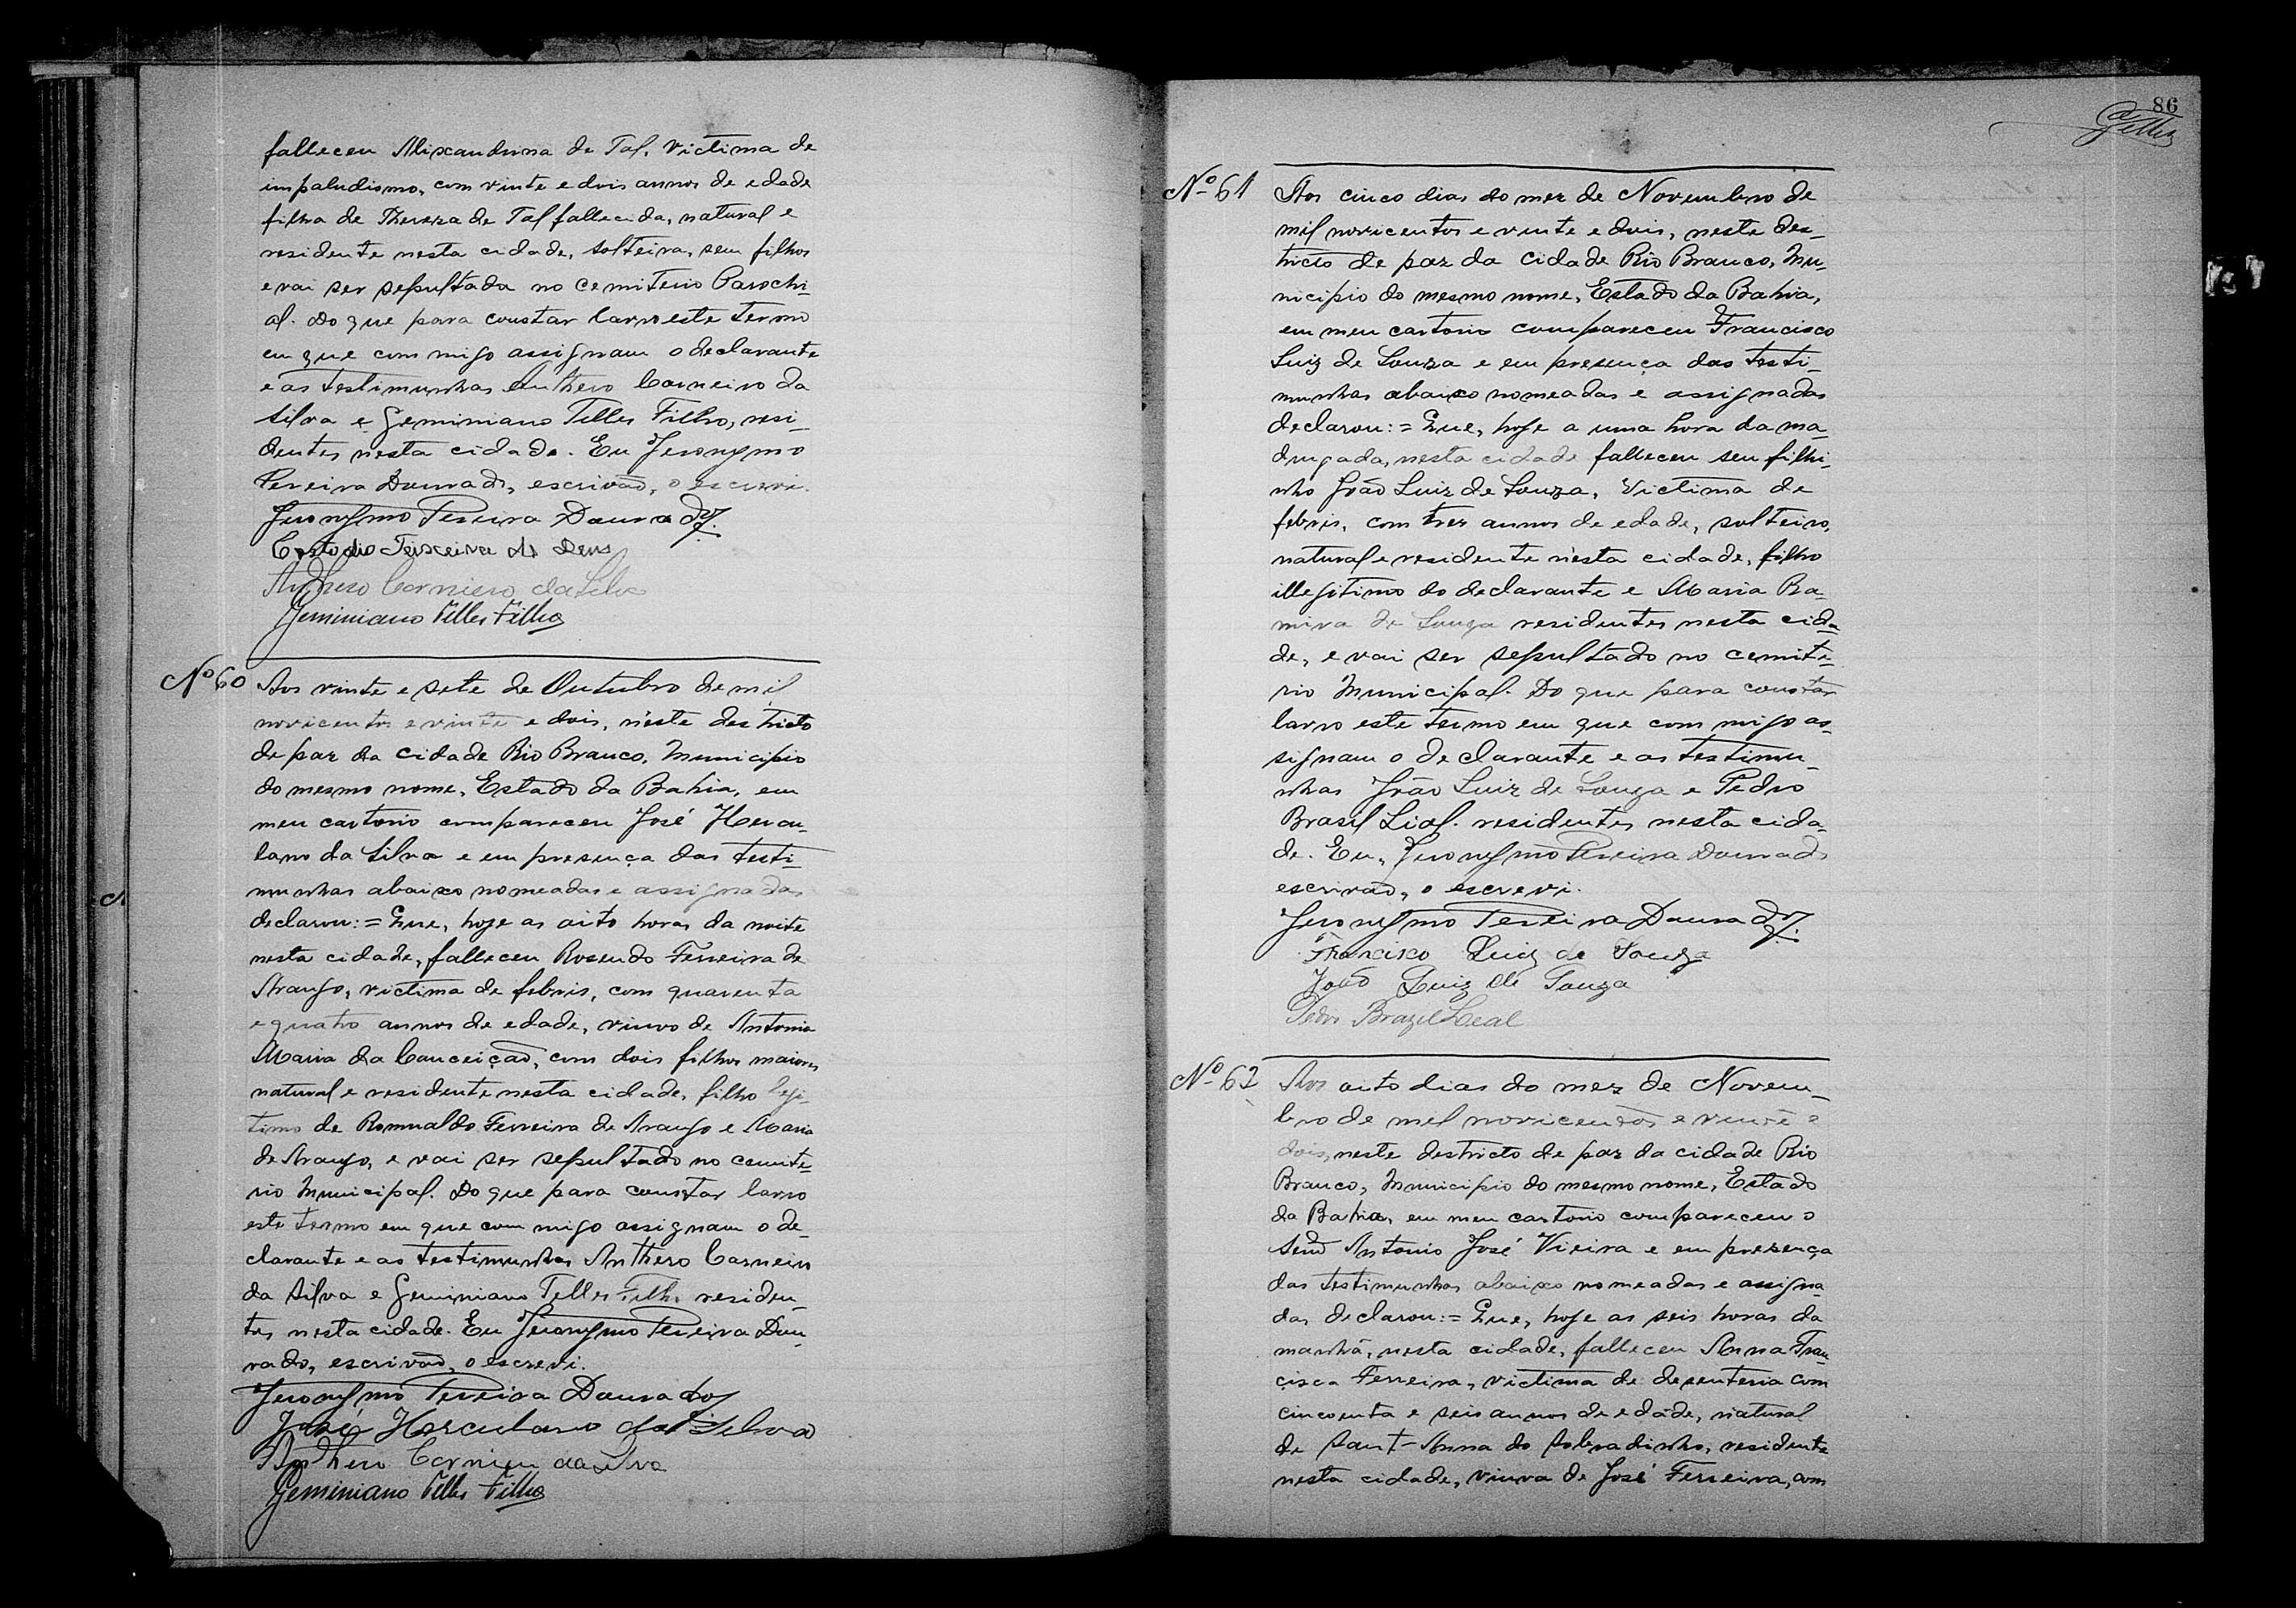 falleceu Alixandrina de Tal, victima de
impaludismo, com vinte e dois annos de edade
filha de Thereza de Tal fallecida, natural e
residente nesta cidade, solteira, sem filhos
e vai ser sepultada no cemiterio Parochi-
al. Do que para constar lavro este termo
em que com migo assignam o declarante
e as testimunhas Anthero Carneiro da
Silva e Geminiano Telles Filho, resi-
dentes nesta cidade. Eu Jeronymo
Pereira Dourado, escrivão, o escrevi.
Jeronymo Pereira Dourado
Custodio Teixeira de Deus
Anthero Carneiro da Silva
Geminiano Telles Filho
Nº 60 Aos vinte e sete de Outubro de mil
novicentos e vinte e dois, n'este destricto
de paz da cidade Rio Branco, Municipio
do mesmo nome, Estado da Bahia, em
meu cartorio compareceu José Hercu-
lano da Silva e em presença das testi-
munhas abaixo nomeadas e assignadas
declarou:= Que, hoje as oito horas da noite
nesta cidade, falleceu Rosendo Ferreira de
Araujo, victima de febris, com quarenta
e quatro annos de edade, viuvo de Antonia
Maria da Conceição, com dois filhos maiores
natural e residente nesta cidade, filho legi-
timo de Romualdo Ferreira de Araujo e Maria
de Araujo, e vai ser sepultado no cemite-
rio Municipal. Do que para constar lavro
este termo em que com migo assignam o de-
clarante e as testimunhas Anthero Carneiro
da Silva e Geminiano Telles Filho residen-
tes nesta cidade. Eu Jeronymo Pereira Dou-
rado, escrivão, o escrevi.
Jeronymo Pereira Dourado
José Herculano da Silva
Anthero Carneiro da Silva
Geminiano Telles Filho
86
Telles
Nº 61 Aos cinco dias do mez de Novembro de
mil novicentos e vinte e dois, neste des-
tricto de paz da cidade Rio Branco, Mu-
nicipio do mesmo nome, Estado da Bahia,
em meu cartorio compareceu Francisco
Luiz de Souza e em presença das testi-
munhas abaixo nomeadas e assignadas
declarou:= Que, hoje a uma hora da ma-
drugada, nesta cidade falleceu seu filhi-
nho João Luiz de Souza, Victima de
febris, com trez annos de edade, solteiro,
natural e residente n'esta cidade, filho
illegitimo do declarante e Maria Ra-
mira de Souza residentes nesta cida-
de, e vai ser sepultado no cemite-
rio Municipal. Do que para constar
lavro este termo em que com migo as-
signam o declarante e as testimu-
nhas João Luiz de Souza e Pedro
Brasil Lial. residentes nesta cida-
de. Eu, Jeronymo Pereira Dourado
escrivão, o escrevi.
Jeronymo Pereira Dourado
Francisco Luiz de Souza
João Luiz de Souza
Pedro Brazil Leal
Nº 62 Aos oito dias do mez de Novem-
bro de mel novicentos e vinte e
dois, neste destricto de paz da cidade Rio
Branco, Municipio do mesmo nome, Estado
da Bahia, em meu cartorio compareceu o
Senr Antonio José Vieira e em presença
das testimunhas abaixo nomeadas e assigna-
das declarou:= Que, hoje as seis horas da
manhã, nesta cidade, falleceu Anna Fran-
cisca Ferreira, victima de desenteria com
cincoenta e seis annos de edade, natural
de Sant-Anna do Sobradinho, residente
nesta cidade, viuva de José Ferreira, com